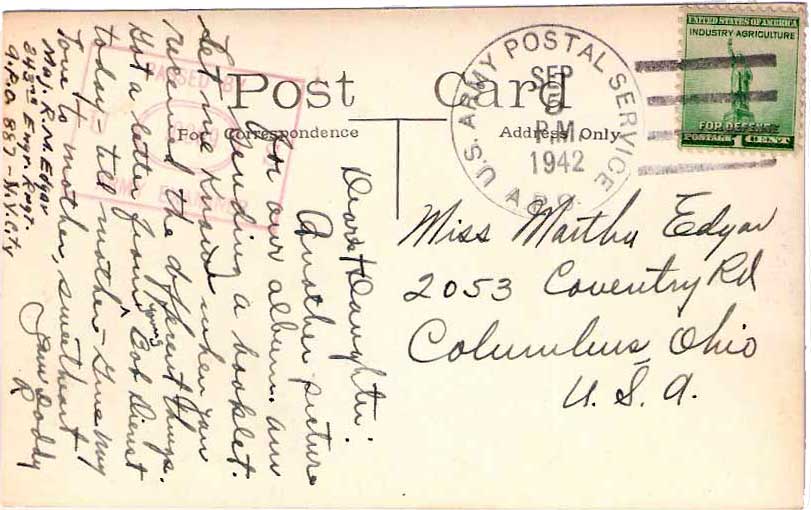 UNITED STATES OF AMERICA
INDUSTRY-AGRICULTURE
FOR DEFENSE
POSTAGE 1 CENT
U.S. ARMY POSTAL SERVICE
SEP
5
P.M.
1942
A.P.O.
Post Card
For Correspondence
Address Only
PASSED BY
ARMY EXAMINER
Miss Martha Edgar
2053 Coventry Rd
Columbus, Ohio
U. S. A.
Dear Daughter:
Another picture
for our album. Am
sending a booklet.
Let me know when you
received the different things.
Got a letter from young Bob Dienst
today - tell mother - Give my
love to mother, sweetheart
Your Daddy
R
Maj. R. M. Edgar
343rd Engr. Regt.
A.P.O 887 - N.Y. City